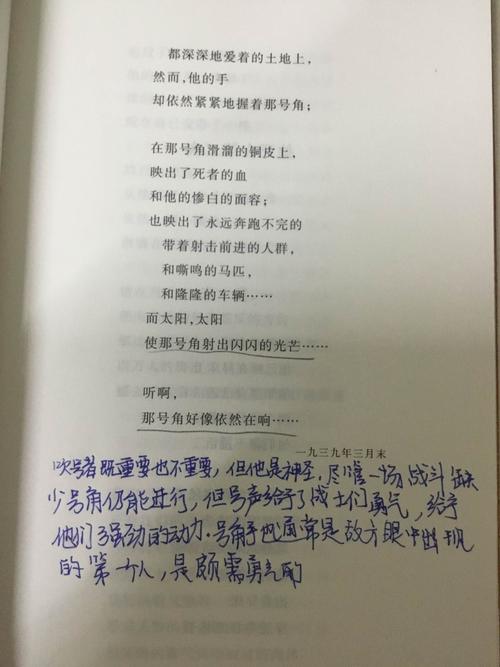 都深深地爱着的土地上，
然而，他的手
却依然紧紧地握着那号角；
在那号角滑溜的铜皮上，
映出了死者的血
和他的惨白的面容；
也映出了永远奔跑不完的
带着射击前进的人群，
和嘶鸣的马匹，
和隆隆的车辆……
而太阳，太阳
使那号角射出闪闪的光芒……
听啊，
那号角好像依然在响……
一九三九年三月末
吹号者既重要也不重要，但他是神圣，尽管一场战斗缺
少号角仍能进行，但号声给予了战士们勇气，给予
他们了强劲的动力。号角手也通常是敌方眼中出现
的第一个人，是颇需勇气的